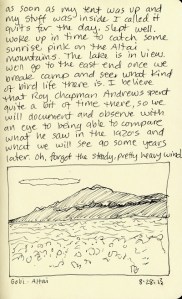 as soon as my tent was up and
my stuff was inside I called it
quits for the day. Slept well.
woke up in time to catch some
sunrise pink on the Altai
mountains. The lake is in view.
We'll go to the east end once we
break camp and see what kind
of bird life there is. I believe
that Roy Chapman Andrews spent
quite a bit of time there, so we
will document and observe with
an eye to being able to compare
what he saw in the 1920s and
what we will see 90 some years
later. Oh, forgot the steady, pretty heavy wind.
Gobi - Altai